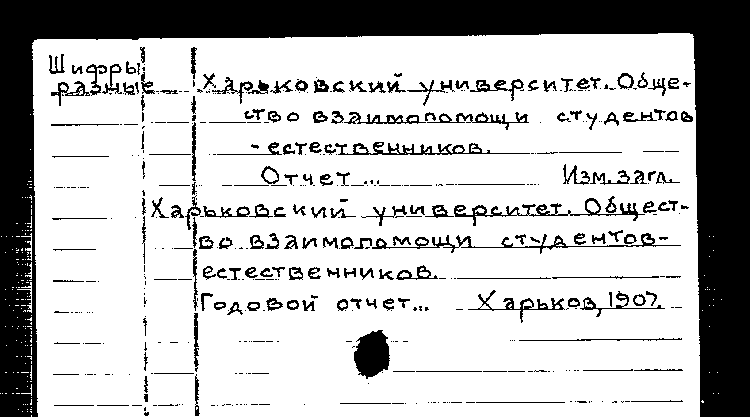 Шифры
разные Харьковский университет. Обще-
ство взаимопомощи студентов
-естественников.
Отчет... Изм. загл.
Харьковский университет. Общест-
во взаимопомощи студентов-
естественников.
Годовой отчет... Харьков, 1907.